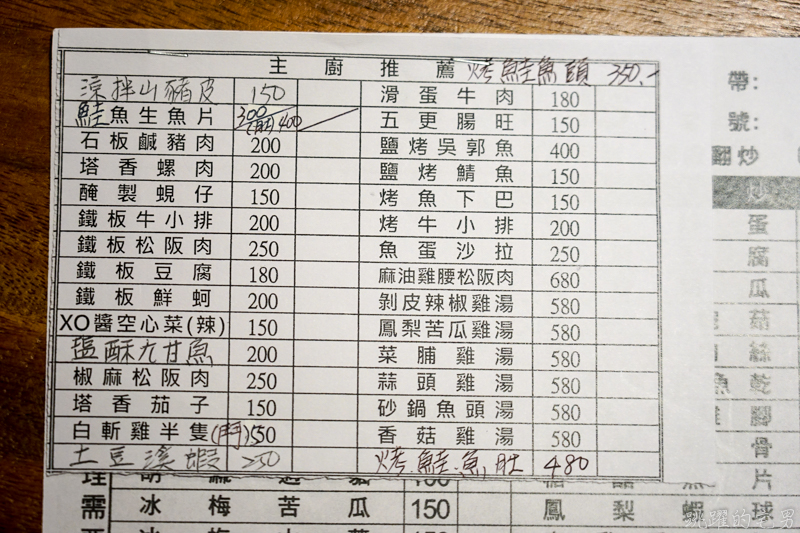 主廚推薦 烤鮭魚頭 350.-
涼拌山豬皮 150 滑蛋牛肉 180
鮭魚生魚片 300 400 五更腸旺 150
石板鹹豬肉 200 鹽烤吳郭魚 400
塔香螺肉 200 鹽烤鯖魚 150
醃製蜆仔 150 烤魚下巴 150
鐵板牛小排 200 烤牛小排 200
鐵板松阪肉 250 魚蛋沙拉 250
鐵板豆腐 180 麻油雞腰松阪肉 680
鐵板鮮蚵 200 剝皮辣椒雞湯 580
XO醬空心菜(辣) 150 鳳梨苦瓜雞湯 580
塩酥九甘魚 200 菜脯雞湯 580
椒麻松阪肉 250 蒜頭雞湯 580
塔香茄子 150 砂鍋魚頭湯 580
白斬雞半隻 香菇雞湯 580
土豆溪蝦 250 烤鮭魚肚 480
冰梅苦瓜 150 鳳梨蝦球
帶:
號:
炒
蛋
腐
瓜
菇
絲
魚乾
腳
骨
片
需
跳躍的宅男